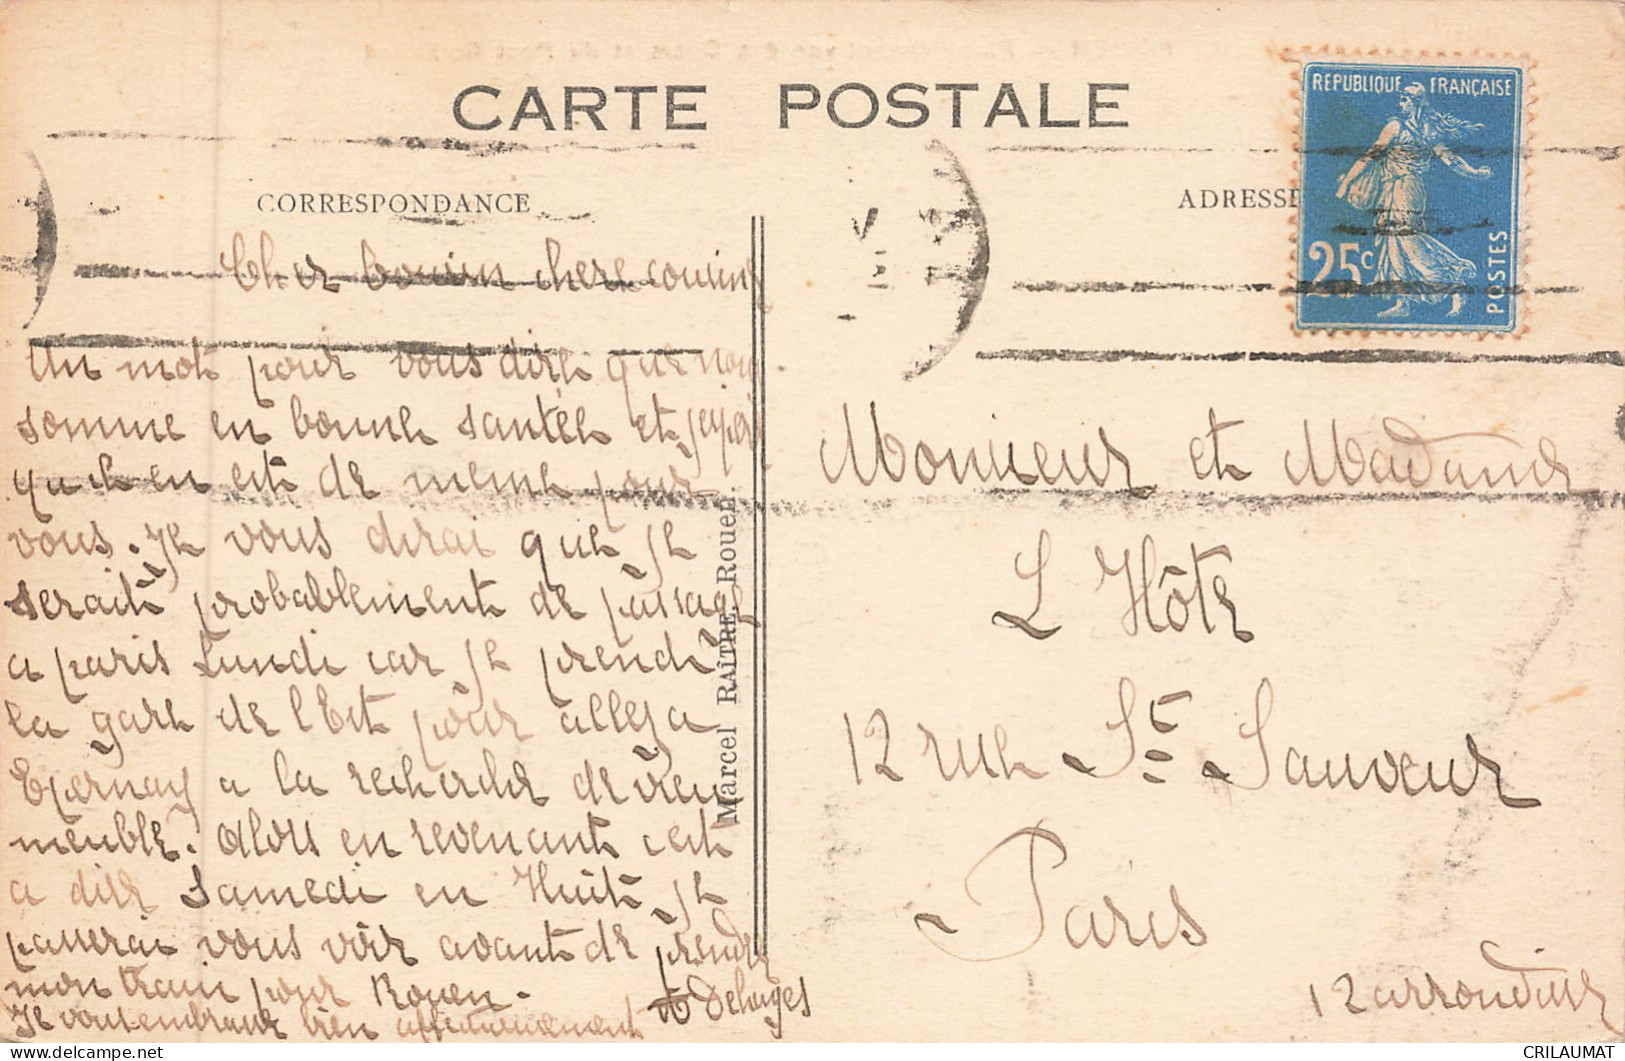 CARTE POSTALE
CORRESPONDANCE
ADRESSE
REPUBLIQUE FRANÇAISE
25c
POSTES
Cher Cousin chere cousine
Un mot pour vous dire que nous
somme en bonne santée et jespère
qu'el en est de meme pour
vous. Je vous dirai que je
serait probablement de passage
a paris Lundi car je prendrai
la gare de l'Est pour aller a
Epernay a la recherche de vieux
meuble. Alors en revenant cest
a dire Samedi en Huit je
passerai vous voir avant de prendre
mon train pour Rouen.
Je vous embrasse bien affectueusement
Marcel RAÎTRE, Rouen
Monsieur et Madame
L'Hôte
12 rue St Sauveur
Paris
12 arrondisse
CRILAUMAT